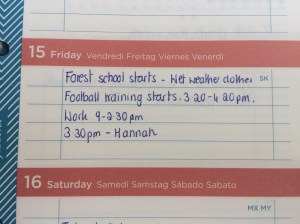 15 Friday Vendredi Freitag Viernes Venerdì
Forest school starts - Wet weather clothes
SK
Football training starts. 3.20-4.20pm.
Work 9-2.30pm
3.30pm - Hannah
16 Saturday Samedi Samstag Sábado Sabato
MX MY